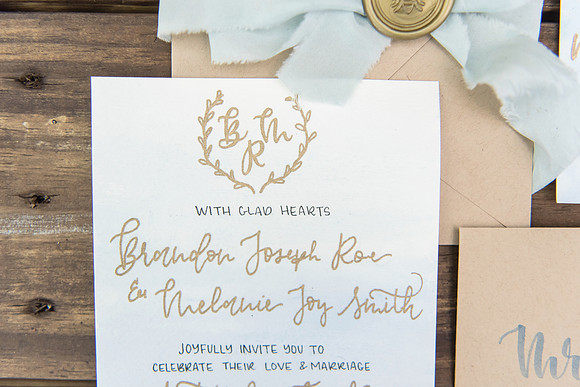 B M
R
WITH GLAD HEARTS
Brandon Joseph Roe
& Melanie Joy Smith
JOYFULLY INVITE YOU TO
CELEBRATE THEIR LOVE & MARRIAGE